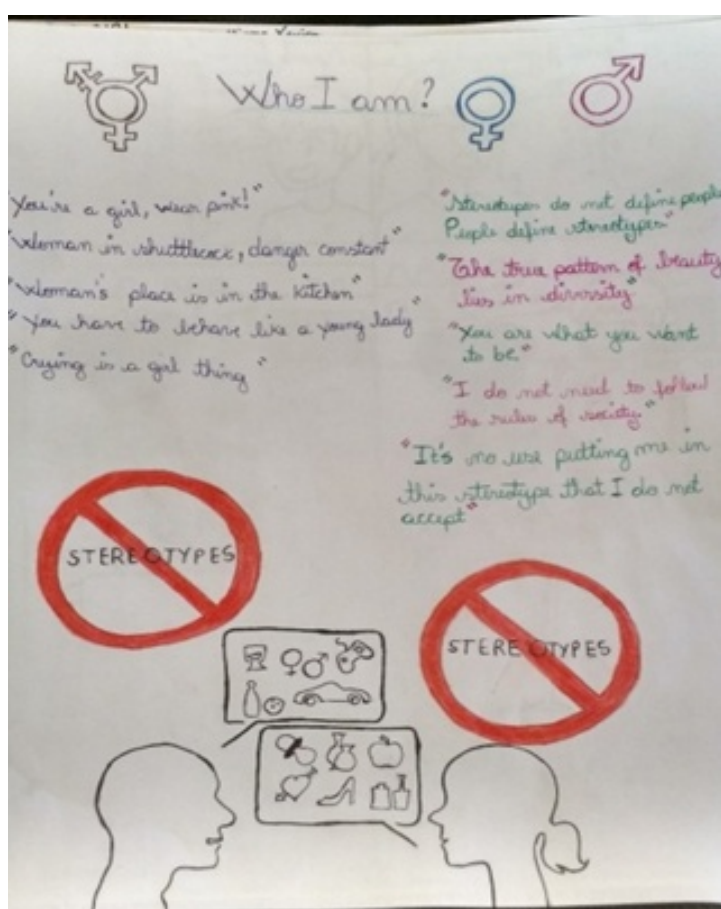 Who I am?
"You're a girl, wear pink!"
"Woman in shuttlecock, danger constant"
"Woman's place is in the kitchen"
"You have to behave like a young lady"
"Crying is a girl thing"
"Stereotypes do not define people
People define stereotypes"
"The true pattern of beauty
lies in diversity"
"You are what you want
to be."
"I do not need to follow
the rules of society."
"It's no use putting me in
this stereotype that I do not
accept"
STEREOTYPES
STEREOTYPES